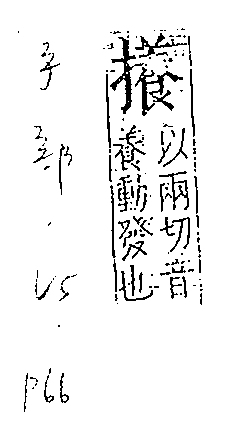 攁
以兩切音
養動發也
手部.15.P66